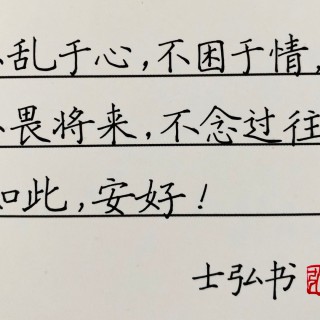 不乱于心,不困于情,
不畏将来,不念过往
如此,安好!
士弘书